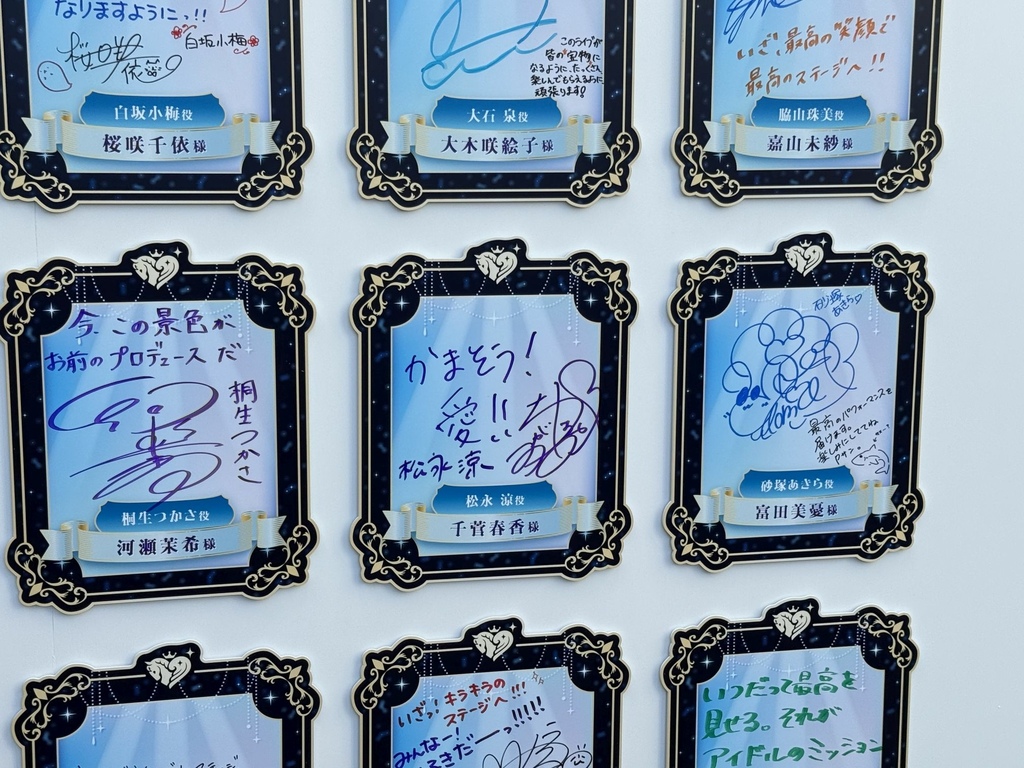 なりますように!!
白坂小梅
桜咲
依
白坂小梅役
桜咲千依様
このライブが
皆の宝物に
なるように、たっくさん
楽しんでもらえるように
頑張ります!
大石 泉役
大木咲絵子様
いざ、最高の笑顔で
最高のステージへ!!
脇山珠美役
嘉山未紗様
今、この景色が
お前のプロデュースだ
桐生つかさ
桐生つかさ役
河瀬茉希様
かまそう!
愛!!
松永涼
松永 涼役
千菅春香様
砂塚
あきら♡
最高のパフォーマンスを
届けます。
楽しみにしててね
Pサン。
砂塚あきら役
富田美憂様
いざっ!キラキラの
ステージへ!!!
みんなー!
いつだって最高を
見せる。それが
アイドルのミッション